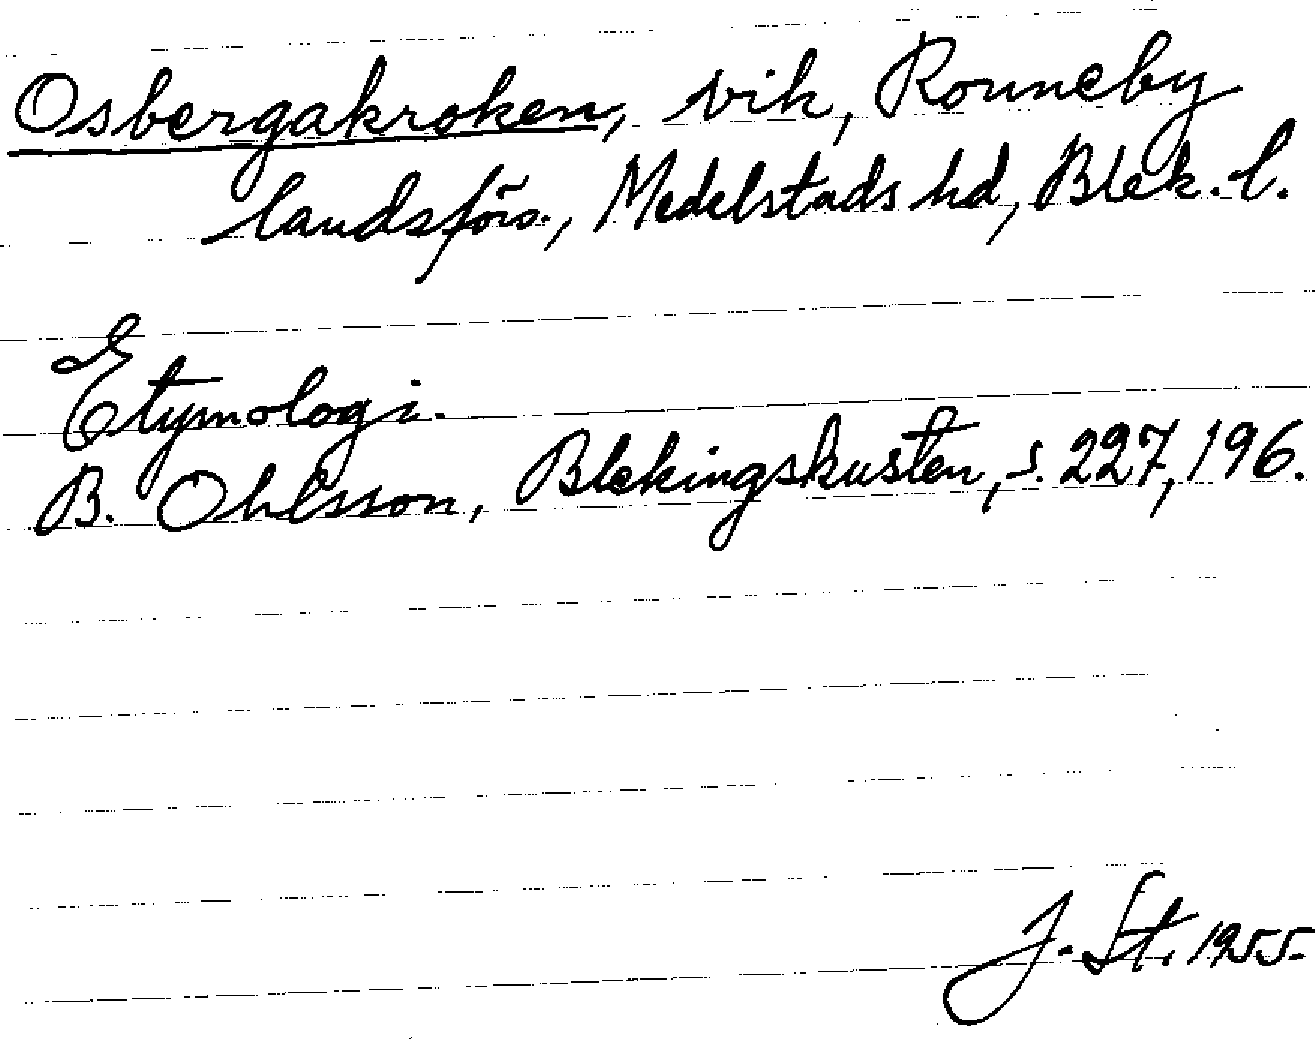 Osbergakroken, vik, Ronneby
landsförs., Medelstads hd, Blek. l.
Etymologi.
B. Ohlsson, Blekingskusten, s. 227, 196.
J. St. 1955